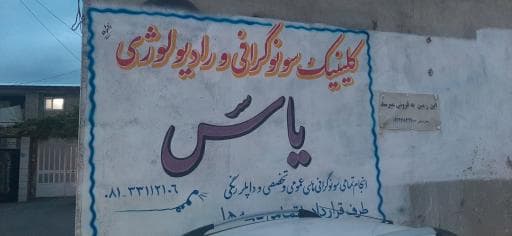 کلینیک سونوگرافی و رادیولوژی
یاس
انجام تمامی سونوگرافی های عمومی و تخصصی و داپلر رنگی
۰۸۱-۳۳۱۱۲۱۰۶
طرف قرارداد
این زمین به فروش میرسد